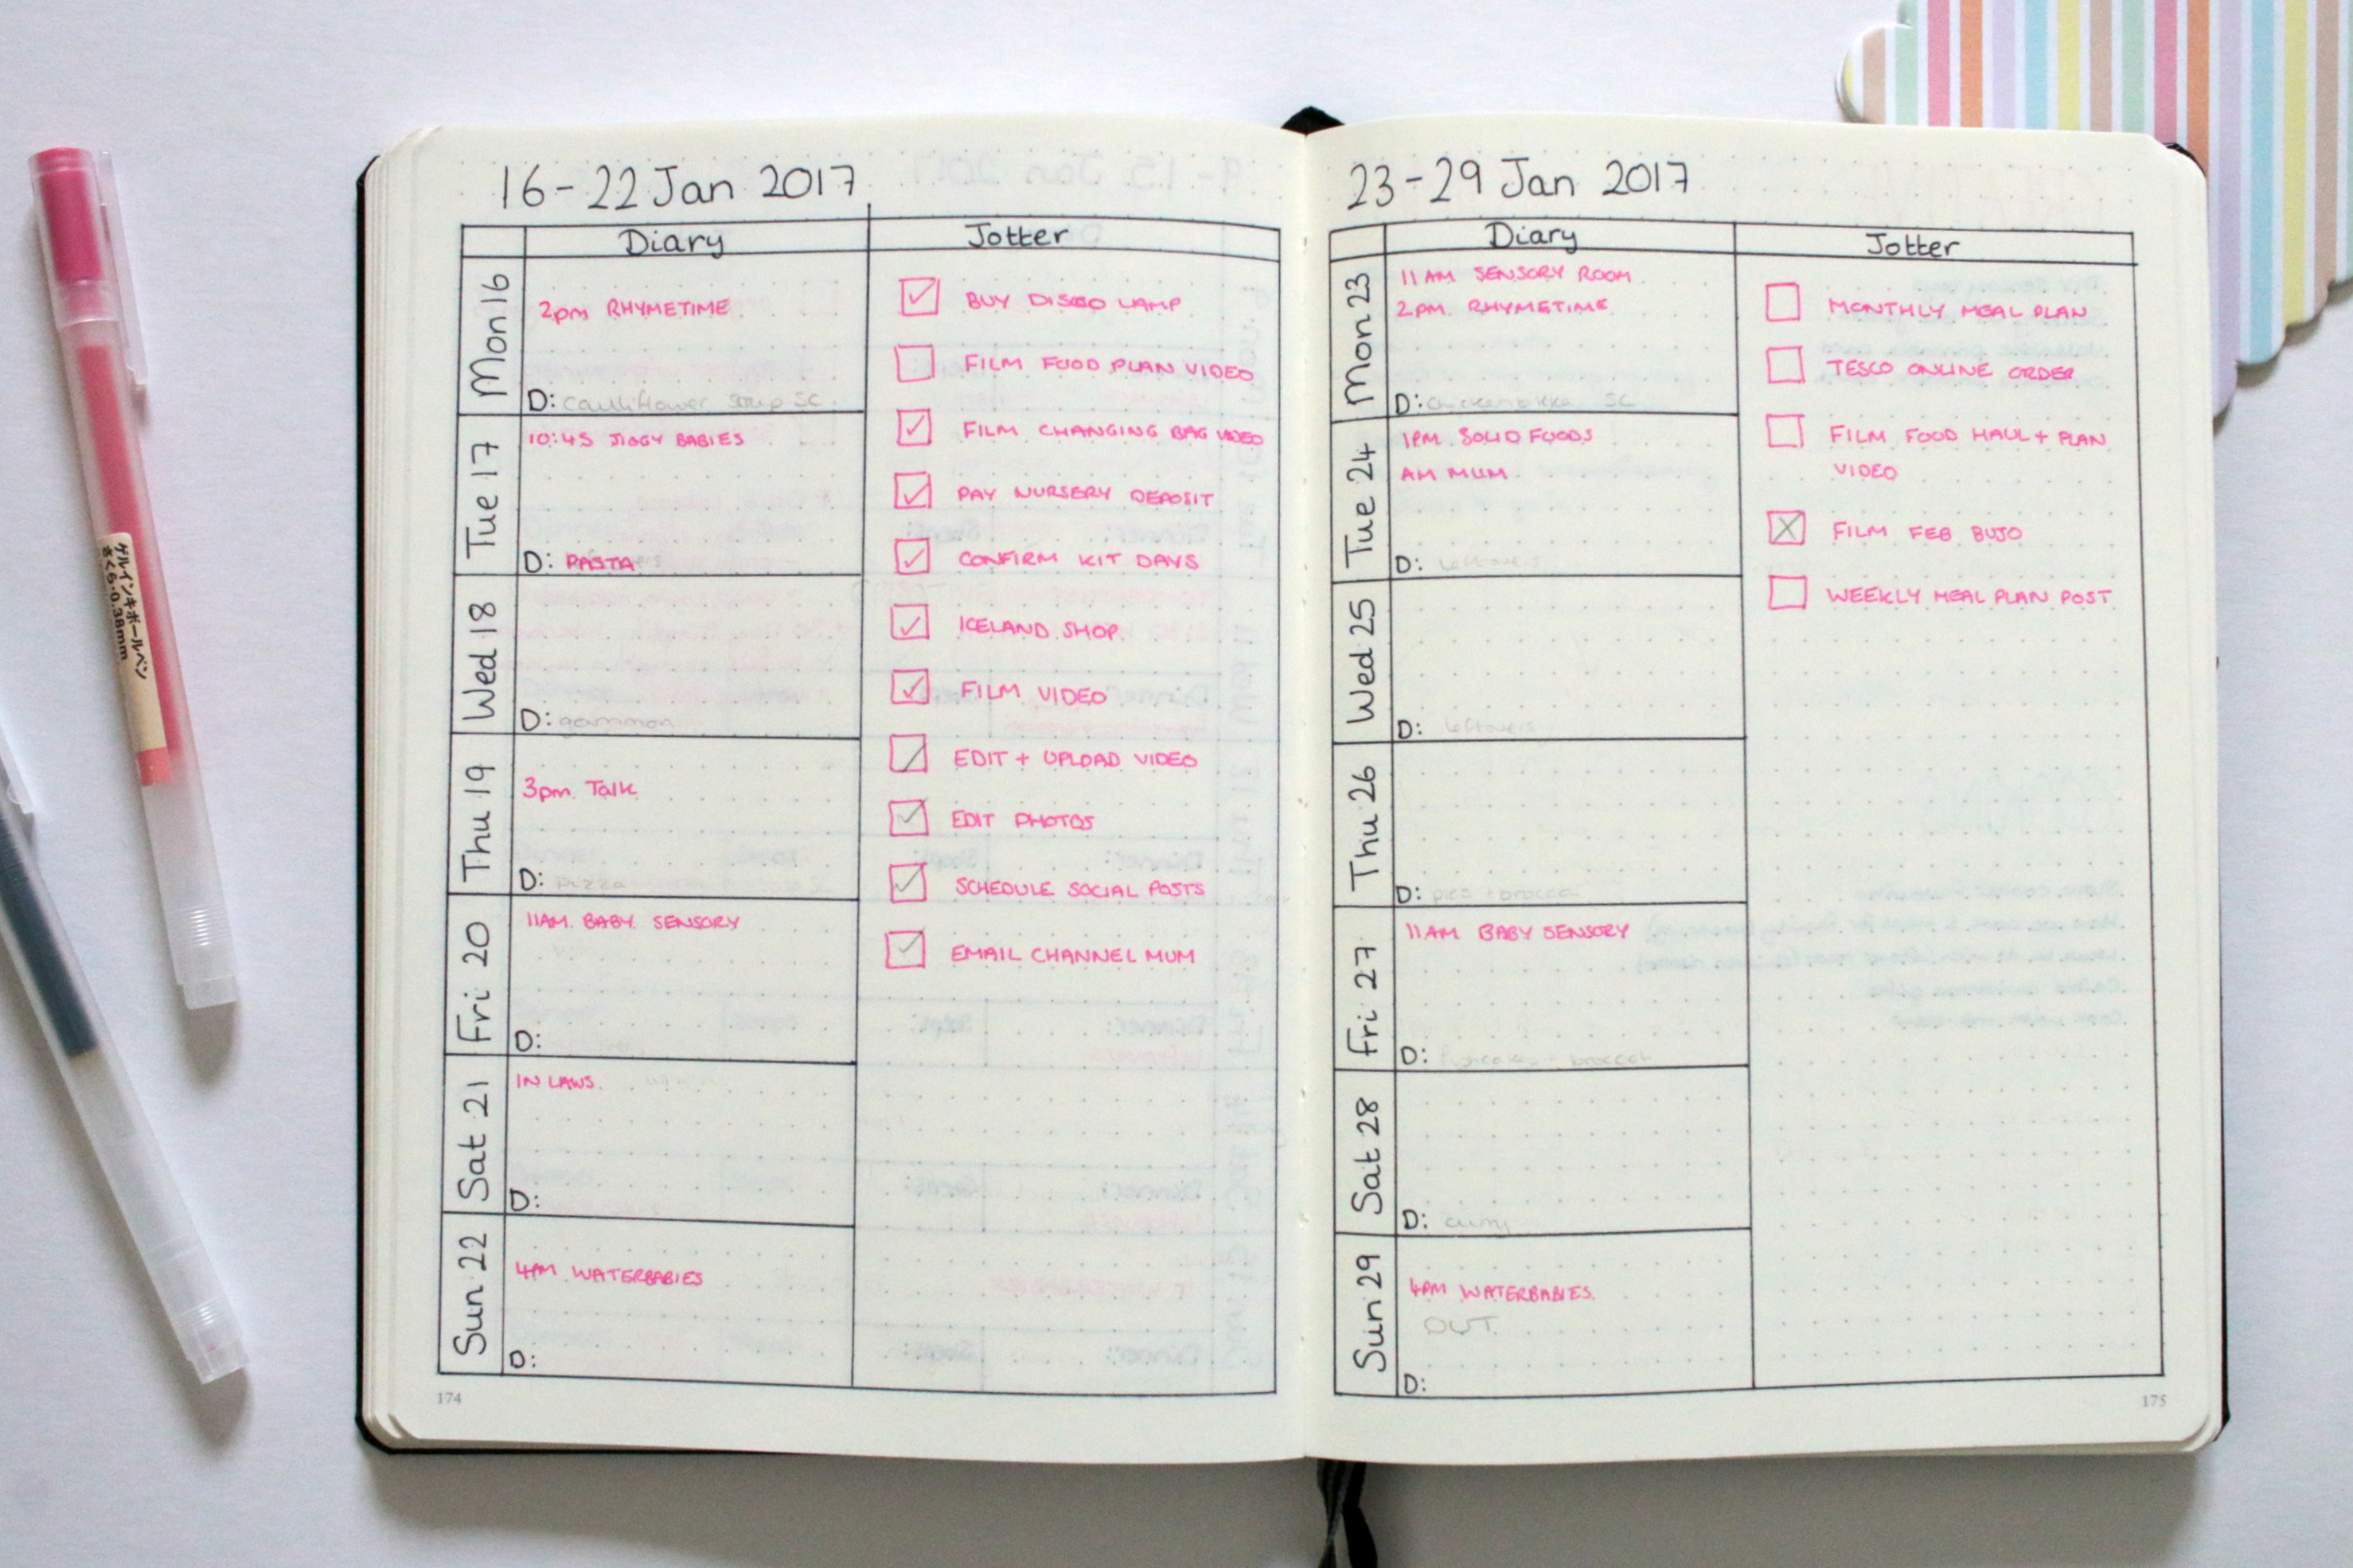 16-22 Jan 2017
Diary
Jotter
Mon 16
2pm RHYMETIME
D: Cauliflower soup SC
Tue 17
10:45 JIGGY BABIES
D: PASTA
Wed 18
D: gammon
Thu 19
3pm Talk
D: pizza
Fri 20
11AM BABY SENSORY
D:
Sat 21
IN LAWS
D:
Sun 22
4PM WATERBABIES
D:
BUY DISCO LAMP
FILM FOOD PLAN VIDEO
FILM CHANGING BAG VIDEO
PAY NURSERY DEPOSIT
CONFIRM KIT DAYS
ICELAND SHOP
FILM VIDEO
EDIT + UPLOAD VIDEO
EDIT PHOTOS
SCHEDULE SOCIAL POSTS
EMAIL CHANNEL MUM
174
23-29 Jan 2017
Diary
Jotter
Mon 23
11AM SENSORY ROOM
2PM RHYMETIME
D: SC
Tue 24
1PM SOLID FOODS
AM MUM
D: leftovers
Wed 25
D: leftovers
Thu 26
D: + broccoli
Fri 27
11AM BABY SENSORY
D: fishcakes + broccoli
Sat 28
D: curry
Sun 29
4PM WATERBABIES
OUT
D:
MONTHLY MEAL PLAN
TESCO ONLINE ORDER
FILM FOOD HAUL + PLAN
VIDEO
FILM FEB BUJO
WEEKLY MEAL PLAN POST
175
ゲルインキボールペン
さくら・0.38mm